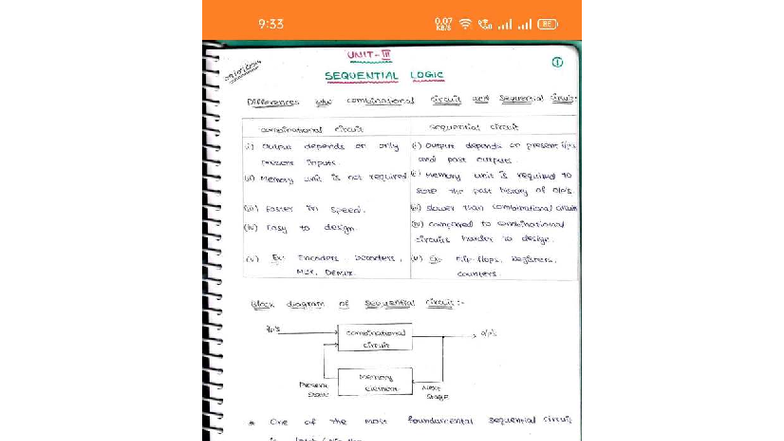 9:33
0.07
KB/s
UNIT-III
1
SEQUENTIAL LOGIC
Differences b/w combinational circuit and Sequential circuit:-
combinational circuit
sequential circuit
(i) Output depends on only
present inputs.
(i) Output depends on present i/ps
and past outputs.
(ii) Memory unit is not required
(ii) Memory unit is required to
store the past history of o/p's.
(iii) Faster in speed.
(iii) Slower than combinational circuit
(iv) Easy to design
(iv) compared to combinational
circuits harder to design.
(v) Ex: Encoders, Decoders,
MUX, DEMUX.
(v) Ex: Flip-flops, Registers,
counters.
Block diagram of Sequential circuit:-
i/p's
combinational
circuit
o/p's
Memory
element
Present
State
Next
Stage
* One of the most foundamental sequential circuit
is